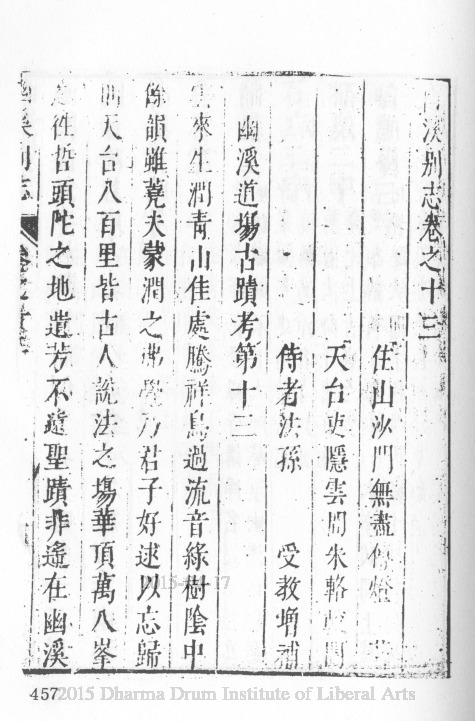 溪別志卷之十三
住山沙門無盡傳燈
天台吏隱雲間朱輅
侍者法孫 受教增補
幽溪道場古蹟考第十三
雲來生潤青山佳處騰祥鳥過流音綠樹陰中
餘韻雖蕘夫蒙潤之佛學乃君子好逑以忘歸
天台八百里皆古人說法之場華頂萬八峯
徃哲頭陀之地遺芳不遠聖蹟非遙在幽溪
幽溪別志 卷之
457
2015 Dharma Drum Institute of Liberal Arts